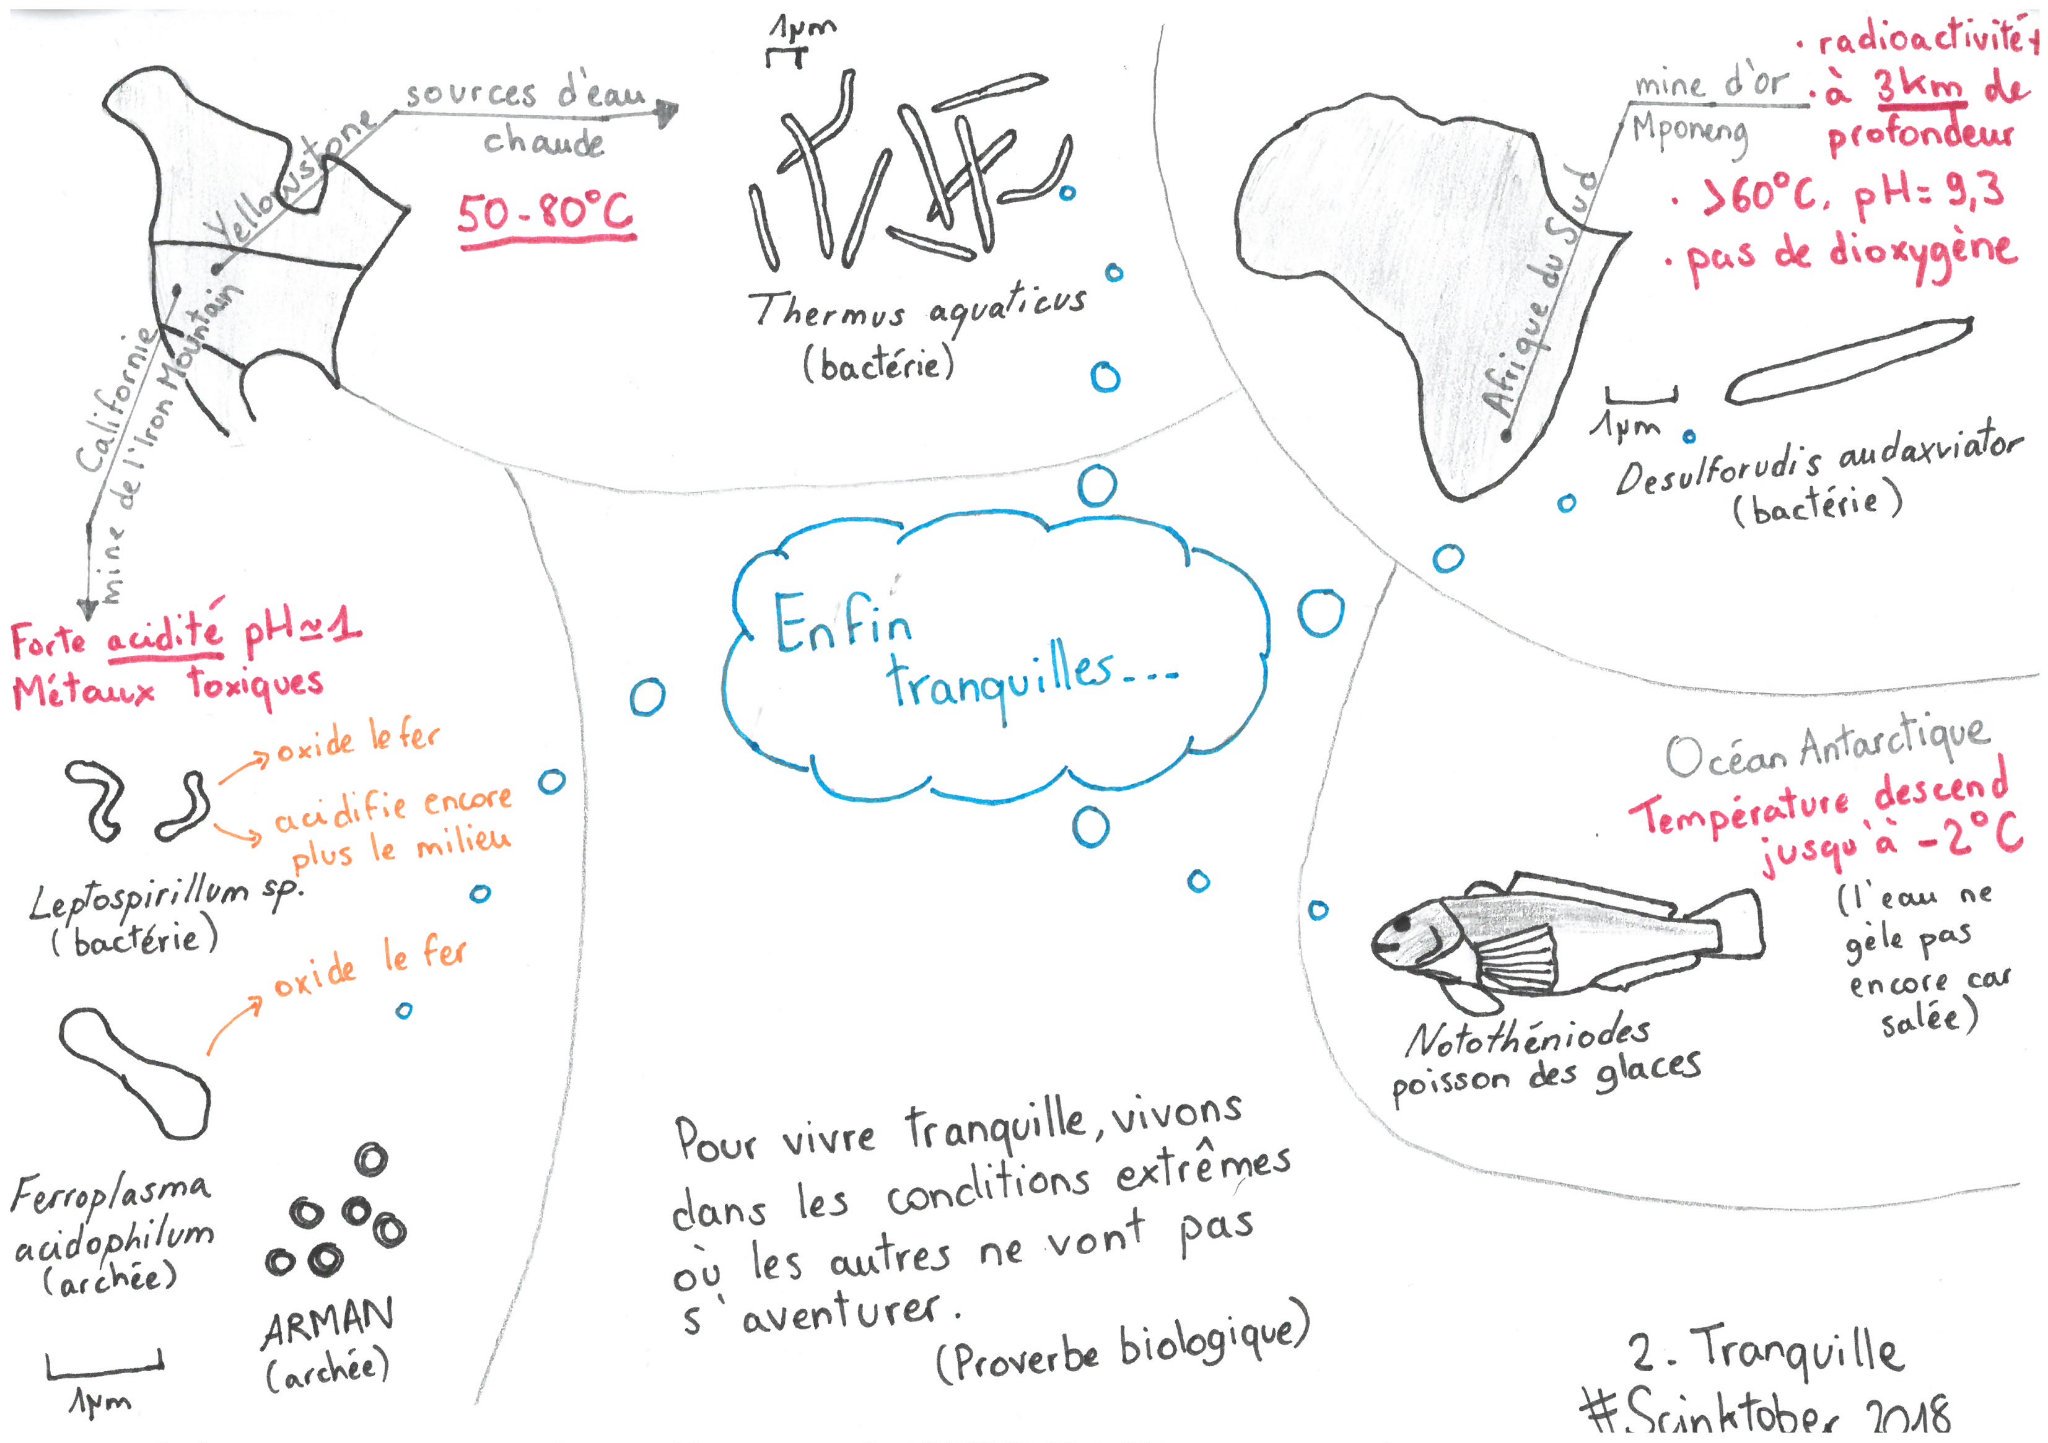 1µm
sources d'eau
chaude
Yellowstone
50-80°C
Thermus aquaticus
(bactérie)
Californie
mine de l'Iron Mountain
Forte acidité pH≃1
Métaux toxiques
oxide le fer
acidifie encore
plus le milieu
Leptospirillum sp.
(bactérie)
oxide le fer
Ferroplasma
acidophilum
(archée)
ARMAN
(archée)
1µm
mine d'or
Mponeng
Afrique du Sud
· radioactivité +
· à 3km de
profondeur
· >60°C, pH=9,3
· pas de dioxygène
1µm
Desulforudis audaxviator
(bactérie)
Enfin
tranquilles...
Océan Antarctique
Température descend
jusqu'à -2°C
(l'eau ne
gèle pas
encore car
salée)
Notothéniodes
poisson des glaces
Pour vivre tranquille, vivons
dans les conditions extrêmes
où les autres ne vont pas
s'aventurer.
(Proverbe biologique)
2. Tranquille
#Scinktober 2018